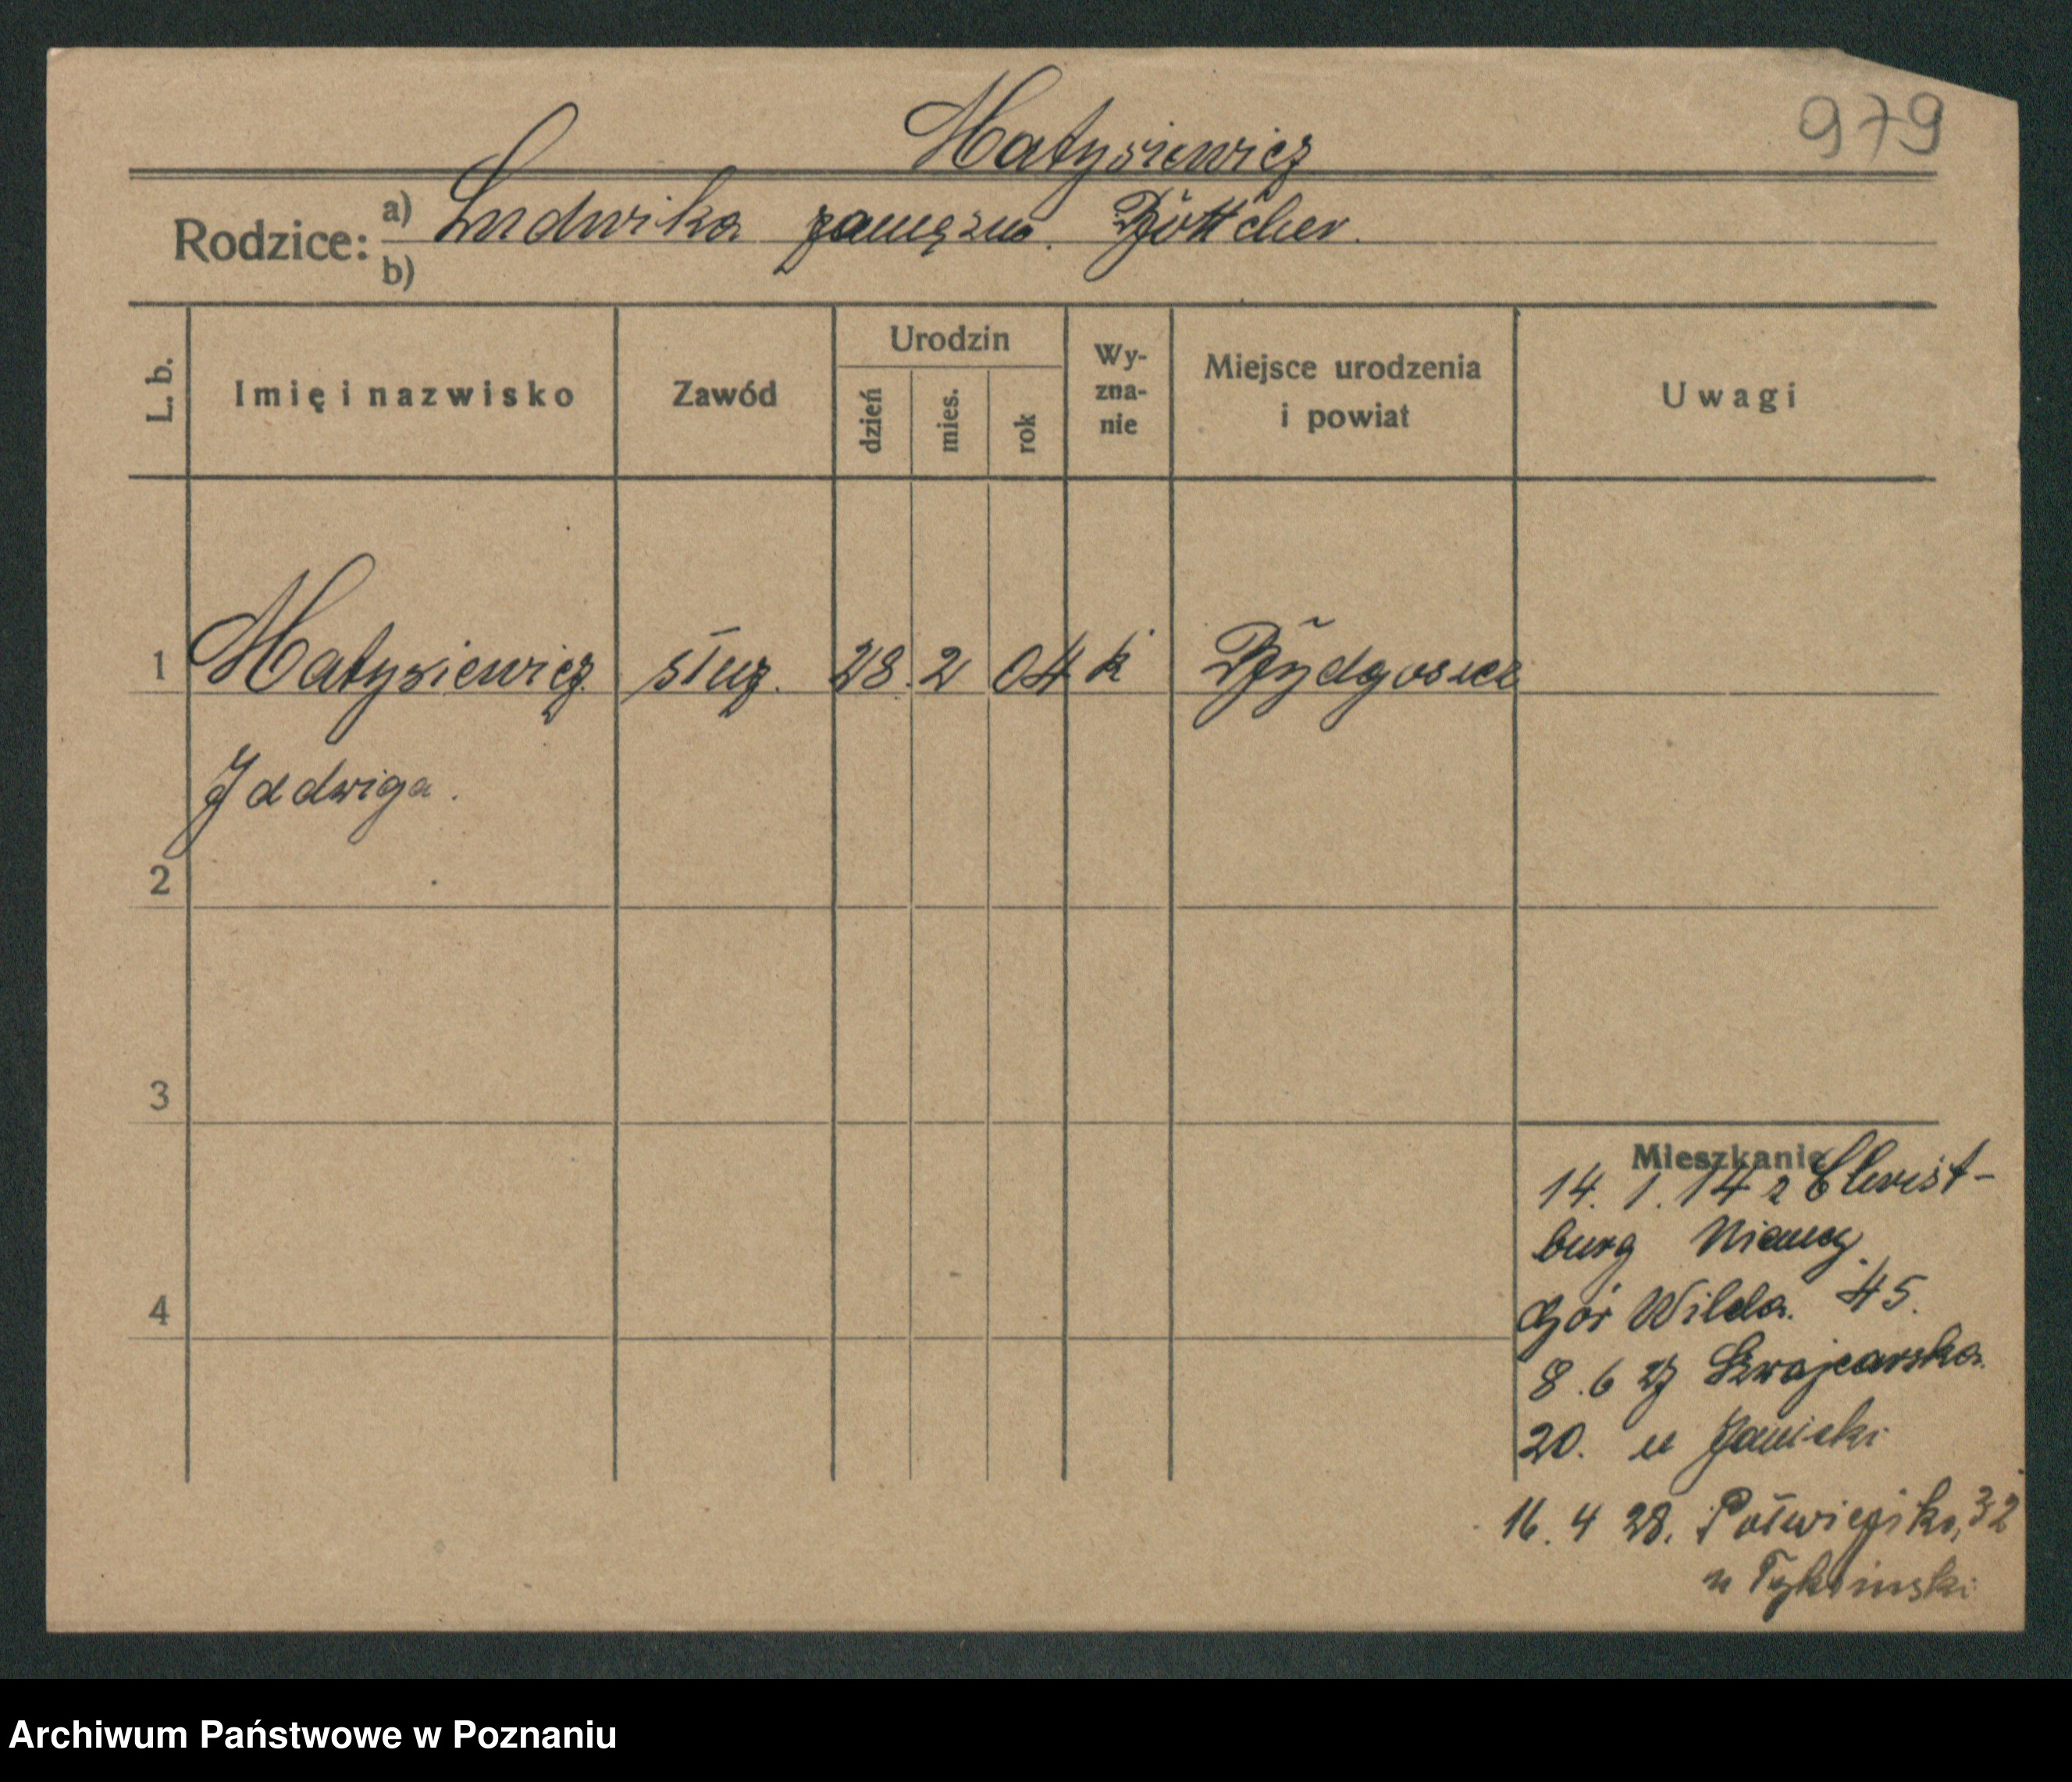 979
Matysiewicz
Rodzice: a) Ludwika zamężna. Böttcher.
b)
L. b. Imię i nazwisko Zawód Urodzin dzień mies. rok Wyzna-nie Miejsce urodzenia i powiat Uwagi
1 Matysiewicz służ. 28. 2 04 k Bydgoszcz
Jadwiga.
2
3
4
Mieszkanie
14. 1. 14 z Christ-
burg Niemcy.
Gór Wilda. 45.
8. 6 27 Szwajcarska.
20. u Janicki
16. 4 28. 32
u
Archiwum Państwowe w Poznaniu